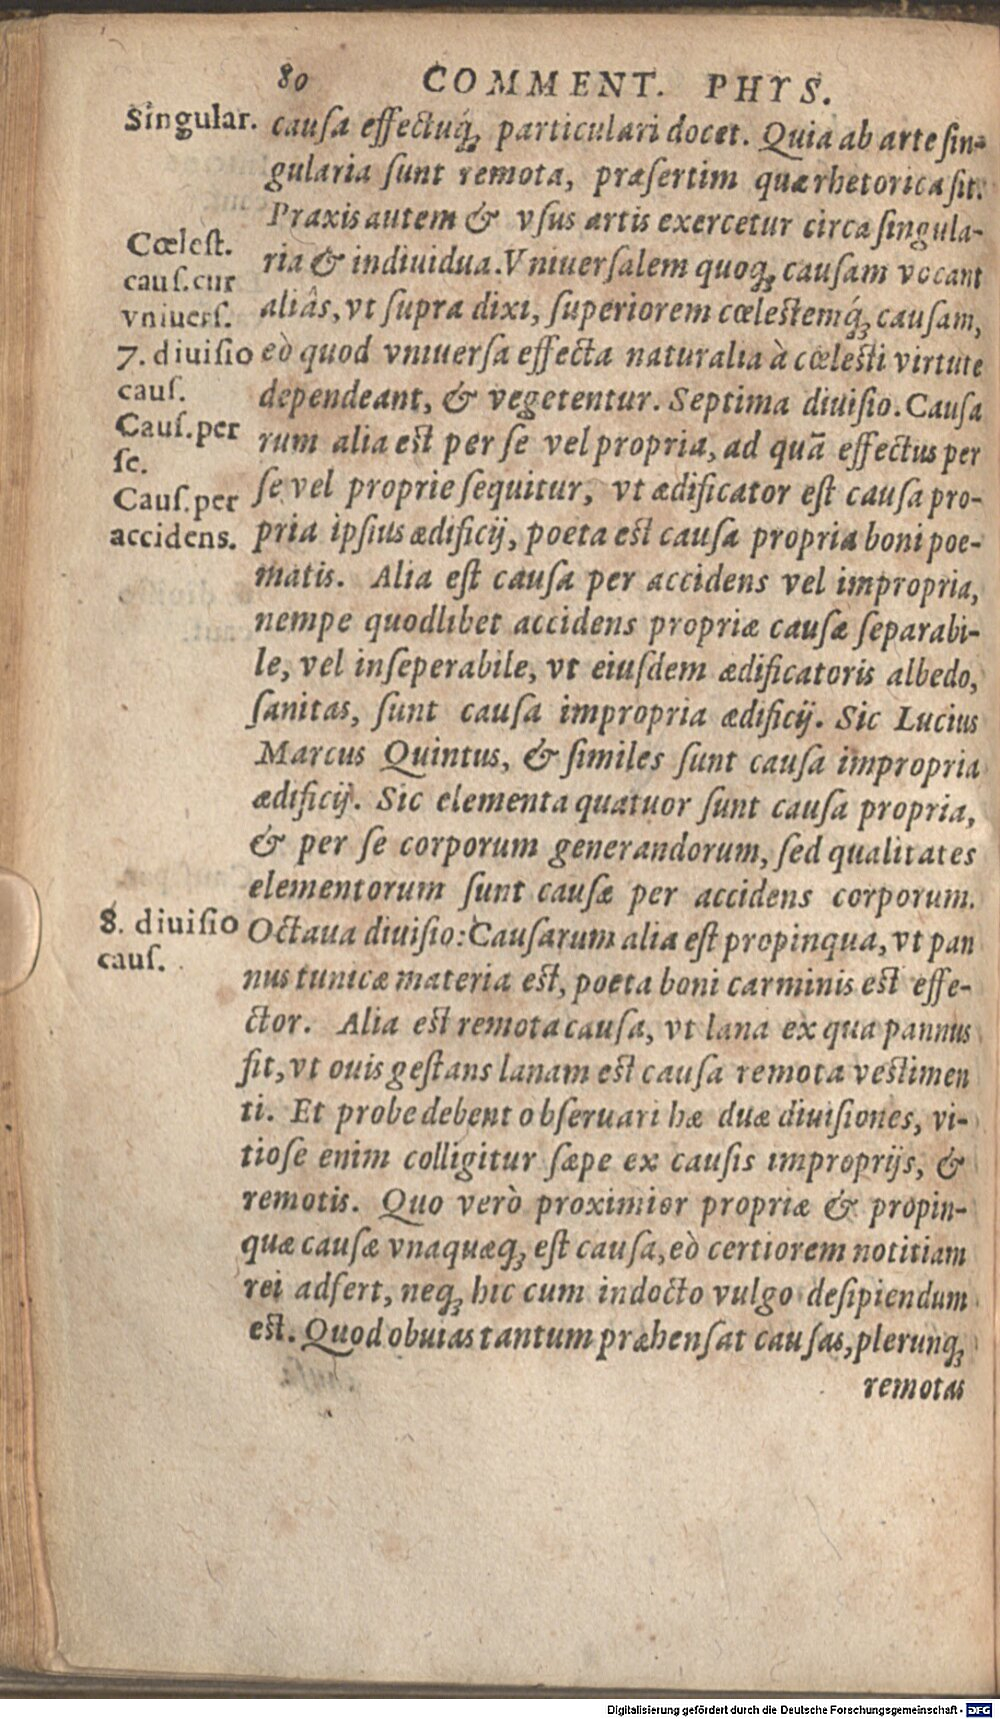 80 COMMENT. PHYS.
Singular.
Cœlest.
caus.cur
vniuers.
7. diuisio
caus.
Caus.per
se.
Caus.per
accidens.
8. diuisio
caus.
causa effectuq́; particulari docet. Quia ab arte sin-
gularia sunt remota, præsertim quæ rhetorica sit.
Praxis autem & vsus artis exercetur circa singula-
ria & indiuidua. Vniuersalem quoq; causam vocant
aliâs, vt supra dixi, superiorem cœlestemq́; causam,
eò quod vniuersa effecta naturalia à cœlesti virtute
dependeant, & vegetentur. Septima diuisio. Causa
rum alia est per se vel propria, ad quã effectus per
se vel proprie sequitur, vt ædificator est causa pro-
pria ipsius ædificij, poeta est causa propria boni poe-
matis. Alia est causa per accidens vel impropria,
nempe quodlibet accidens propriæ causæ separabi-
le, vel inseperabile, vt eiusdem ædificatoris albedo,
sanitas, sunt causa impropria ædificij. Sic Lucius
Marcus Quintus, & similes sunt causa impropria
ædificij. Sic elementa quatuor sunt causa propria,
& per se corporum generandorum, sed qualitates
elementorum sunt causæ per accidens corporum.
Octaua diuisio: Causarum alia est propinqua, vt pan
nus tunicæ materia est, poeta boni carminis est effe-
ctor. Alia est remota causa, vt lana ex qua pannus
fit, vt ouis gestans lanam est causa remota vestimen
ti. Et probe debent obseruari hæ duæ diuisiones, vi-
tiose enim colligitur sæpe ex causis improprijs, &
remotis. Quo verò proximior propriæ & propin-
quæ causæ vnaquæq; est causa, eò certiorem notitiam
rei adfert, neq; hic cum indocto vulgo desipiendum
est. Quod obuias tantum præhensat causas, plerunq;
remotas
Digitalisierung gefördert durch die Deutsche Forschungsgemeinschaft - DFG